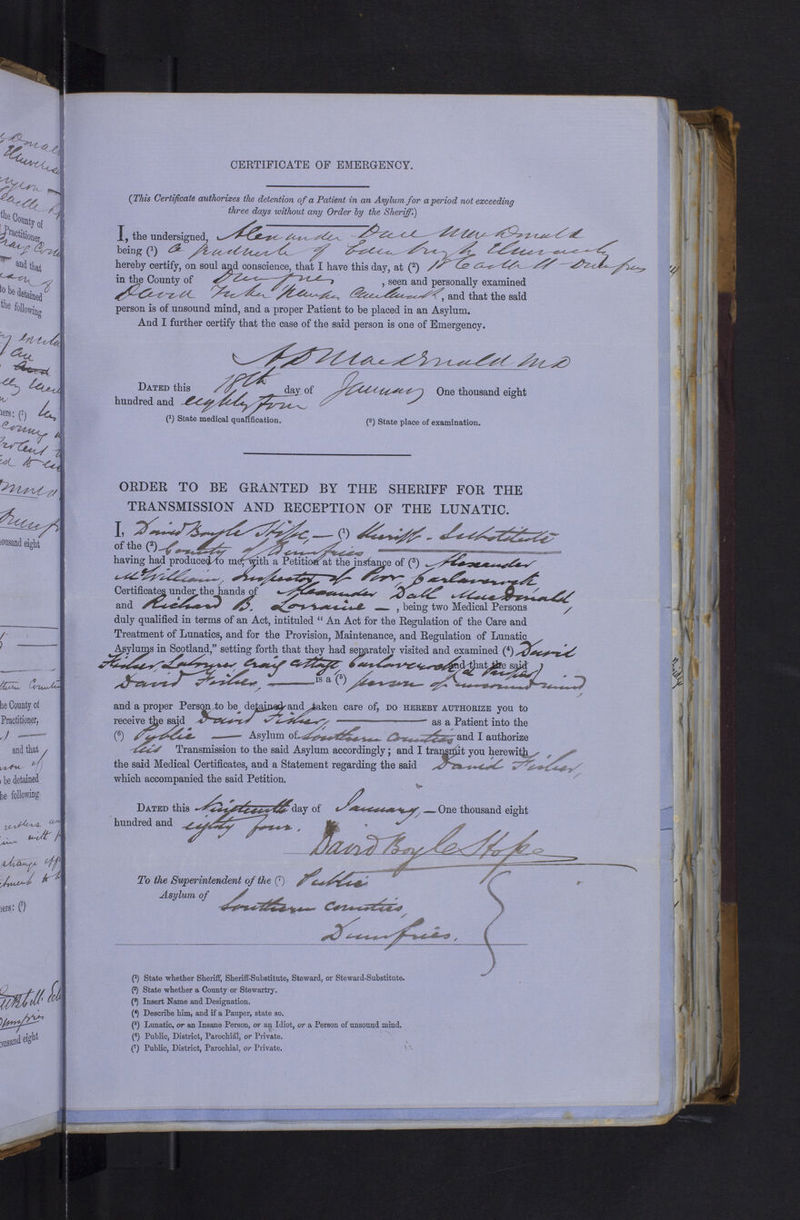 CERTIFICATE OF EMERGENCY.
(This Certificate authorizes the detention of a Patient in an Asylum for a period not exceeding
three days without any Order by the Sheriff.)
I, the undersigned, Alexander Dall MacDonald
being (¹) a Graduate of Edinburgh University
hereby certify, on soul and conscience, that I have this day, at (²) Castle St Dumfries
in the County of Dumfries, seen and personally examined
David Fisher Caerlaverock, and that the said
person is of unsound mind, and a proper Patient to be placed in an Asylum.
And I further certify that the case of the said person is one of Emergency.
A D MacDonald MD
DATED this 18th day of January One thousand eight
hundred and eighty four
(¹) State medical qualification. (²) State place of examination.
ORDER TO BE GRANTED BY THE SHERIFF FOR THE
TRANSMISSION AND RECEPTION OF THE LUNATIC.
I, David Boyle Hope, — (¹) Sheriff-Substitute
of the (²) County of Dumfries
having had produced to me, with a Petition at the instance of (³) Alexander
McWilliam, Inspector of Poor, Carlaverock
Certificates under the hands of Alexander Dall MacDonald,
and Richard B. Lorraine —, being two Medical Persons
duly qualified in terms of an Act, intituled "An Act for the Regulation of the Care and
Treatment of Lunatics, and for the Provision, Maintenance, and Regulation of Lunatic
Asylums in Scotland," setting forth that they had separately visited and examined (⁴) David
Fisher Labourer, Craig Cottage Carlaverock (a Pauper) and that the said
David Fisher, — is a (⁵) person of unsound mind,
and a proper Person to be detained and taken care of, DO HEREBY AUTHORIZE you to
receive the said David Fisher, — as a Patient into the
(⁶) Public — Asylum of Southern Counties and I authorize
his Transmission to the said Asylum accordingly; and I transmit you herewith
the said Medical Certificates, and a Statement regarding the said David Fisher,
which accompanied the said Petition.
DATED this Nineteenth day of January, — One thousand eight
hundred and eighty four.
David Boyle Hope
To the Superintendent of the (⁷) Public
Asylum of Southern Counties,
Dumfries.
(¹) State whether Sheriff, Sheriff-Substitute, Steward, or Steward-Substitute.
(²) State whether a County or Stewartry.
(³) Insert Name and Designation.
(⁴) Describe him, and if a Pauper, state so.
(⁵) Lunatic, or an Insane Person, or an Idiot, or a Person of unsound mind.
(⁶) Public, District, Parochial, or Private.
(⁷) Public, District, Parochial, or Private.
the County of
Practitioner,
and that
to be detained
the following
ousand eight
he County of
Practitioner,
and that
be detained
he following
ousand eight